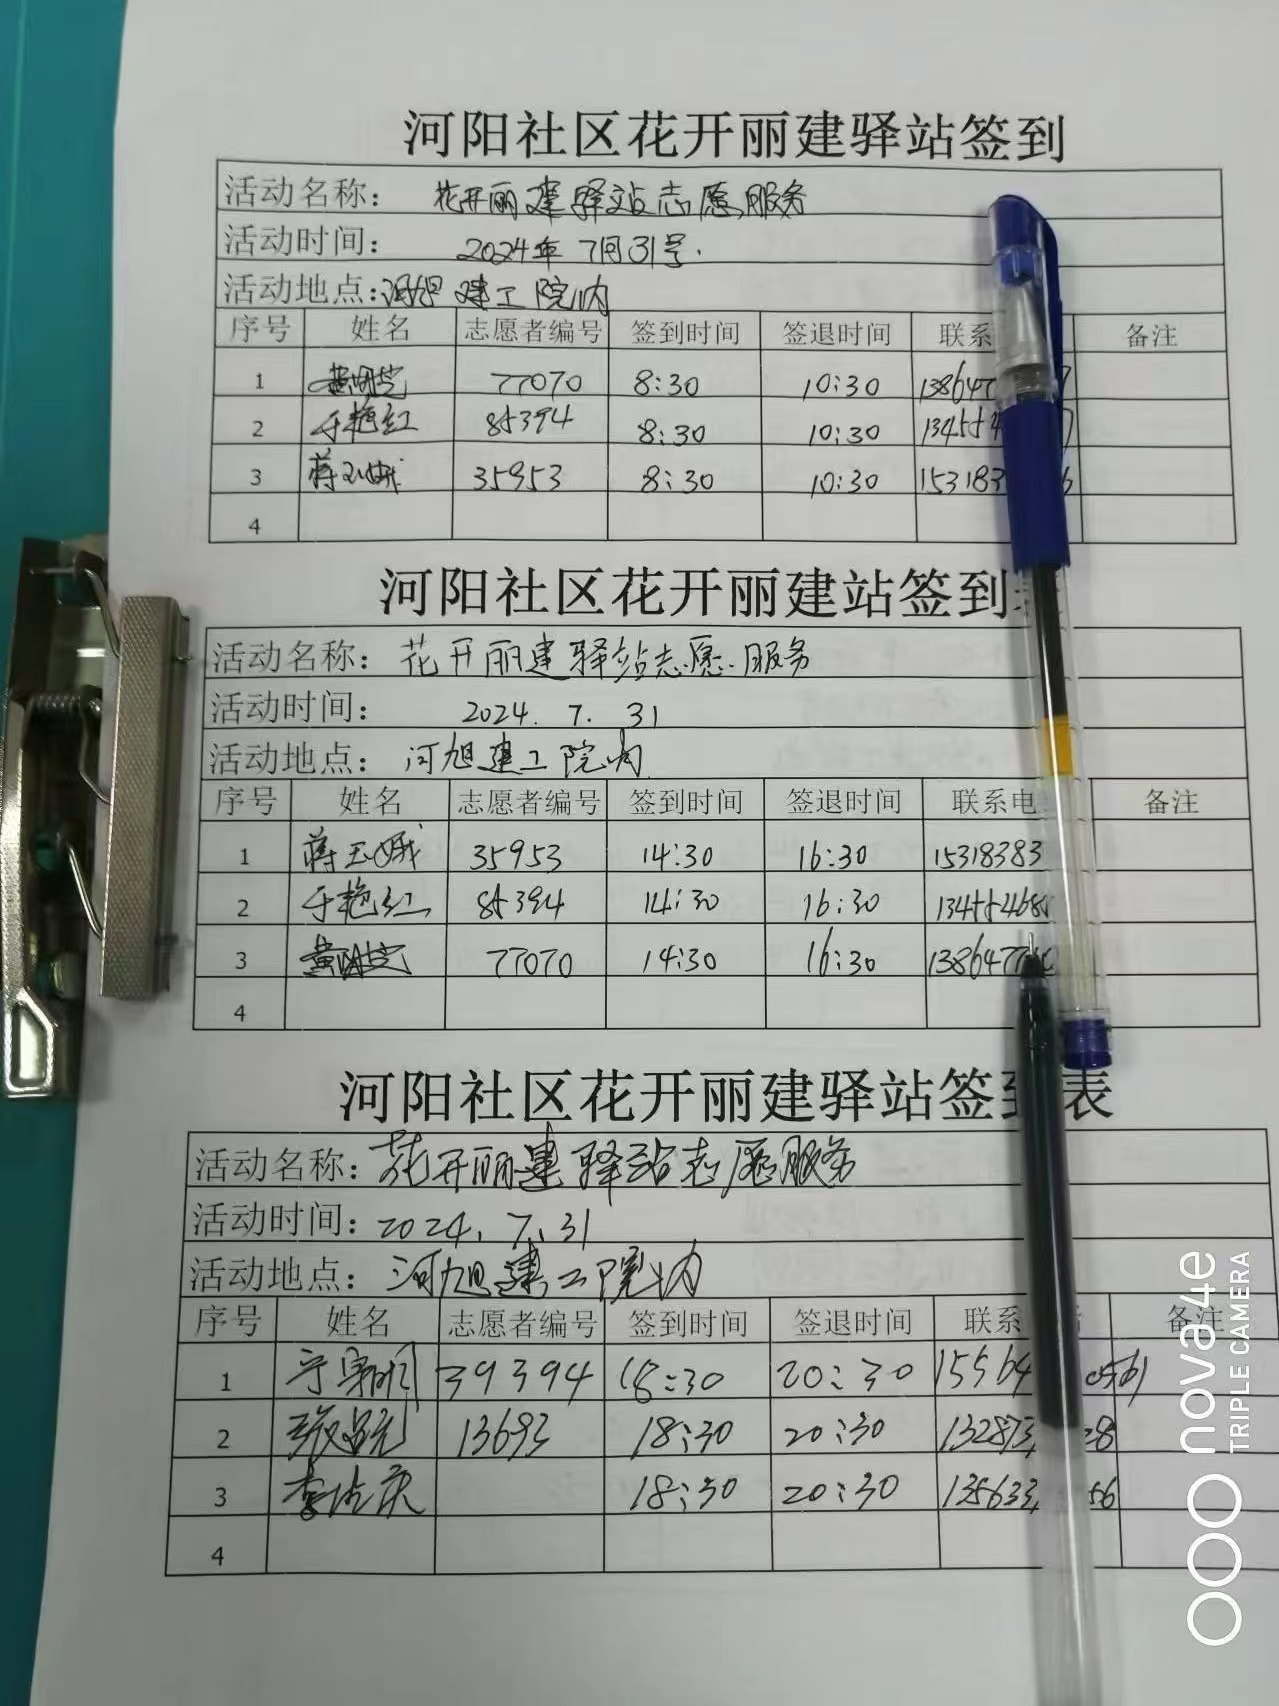 河阳社区花开丽建驿站签到
活动名称： 花开丽建驿站志愿服务
活动时间： 2024年7月31号.
活动地点：河旭建工院内
序号 姓名 志愿者编号 签到时间 签退时间 联系 备注
1 77070 8:30 10:30 138647
2 于艳红 85394 8:30 10:30 13455
3 蒋玉娥 35953 8:30 10:30 153183 6
4
河阳社区花开丽建站签到
活动名称：花开丽建驿站志愿服务
活动时间： 2024. 7. 31
活动地点： 河旭建工院内
序号 姓名 志愿者编号 签到时间 签退时间 联系电 备注
1 蒋玉娥 35953 14:30 16:30 15318383
2 于艳红 85394 14:30 16:30 13455468
3 77070 14:30 16:30 1386477
4
河阳社区花开丽建驿站签到表
活动名称：花开丽建驿站志愿服务
活动时间：2024.7.31
活动地点： 河旭建工院内
序号 姓名 志愿者编号 签到时间 签退时间 联系 备注
1 39394 18:30 20:30 15564 0561
2 13693 18:30 20:30 132873 28
3 18:30 20:30 135633 56
4
nova 4e
TRIPLE CAMERA